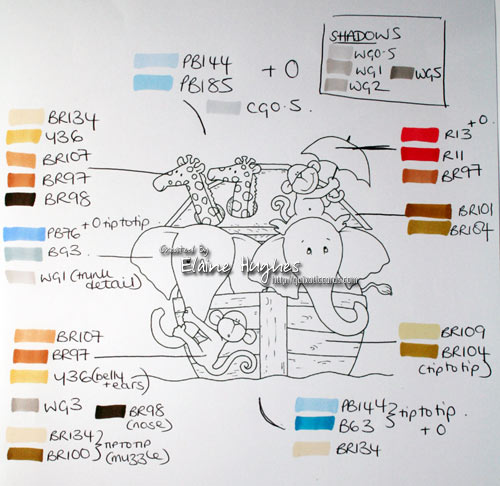 PB144
PB185
+ O
CG0.5.
SHADOWS
WG0.5
WG1
WG5
WG2
BR134
Y36
BR107
BR97
BR98
R13 + O.
R11
BR97
BR101
BR104
PB76 + O tip to tip
BG3.
WG1 (trunk detail)
Created By
Elaine Hughes
BR107
BR97
Y36 (belly + ears)
WG3
BR98 (nose)
BR134
BR100
TIP TO TIP (muzzle)
BR109
BR104
(tip to tip)
PB144
B63
tip to tip.
+ O
BR134